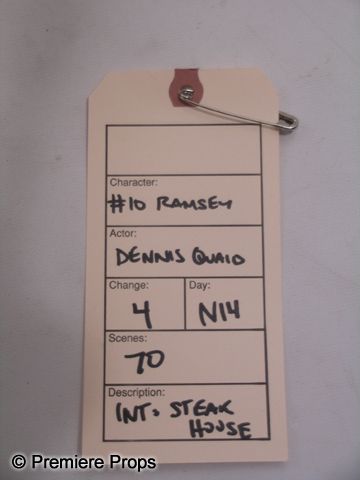 Character:
#10 RAMSEY
Actor:
DENNIS QUAID
Change:
4
Day:
N14
Scenes:
70
Description:
INT. STEAK
HOUSE
© Premiere Props